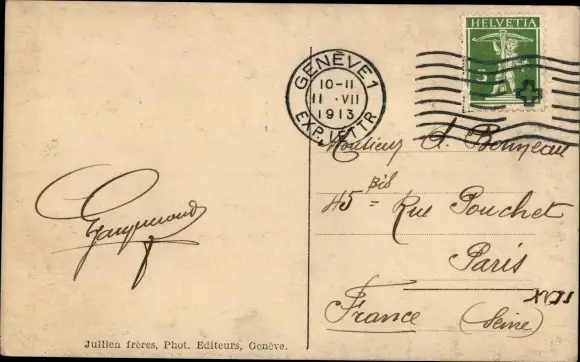 HELVETIA
5
GENÈVE 1
10-11
11 · VII
1913
EXP. LETTR
Monsieur d. Bonneau
45 bis = Rue Pouchet
Paris
XVII
France (Seine)
Jullien frères, Phot. Editeurs, Genève.